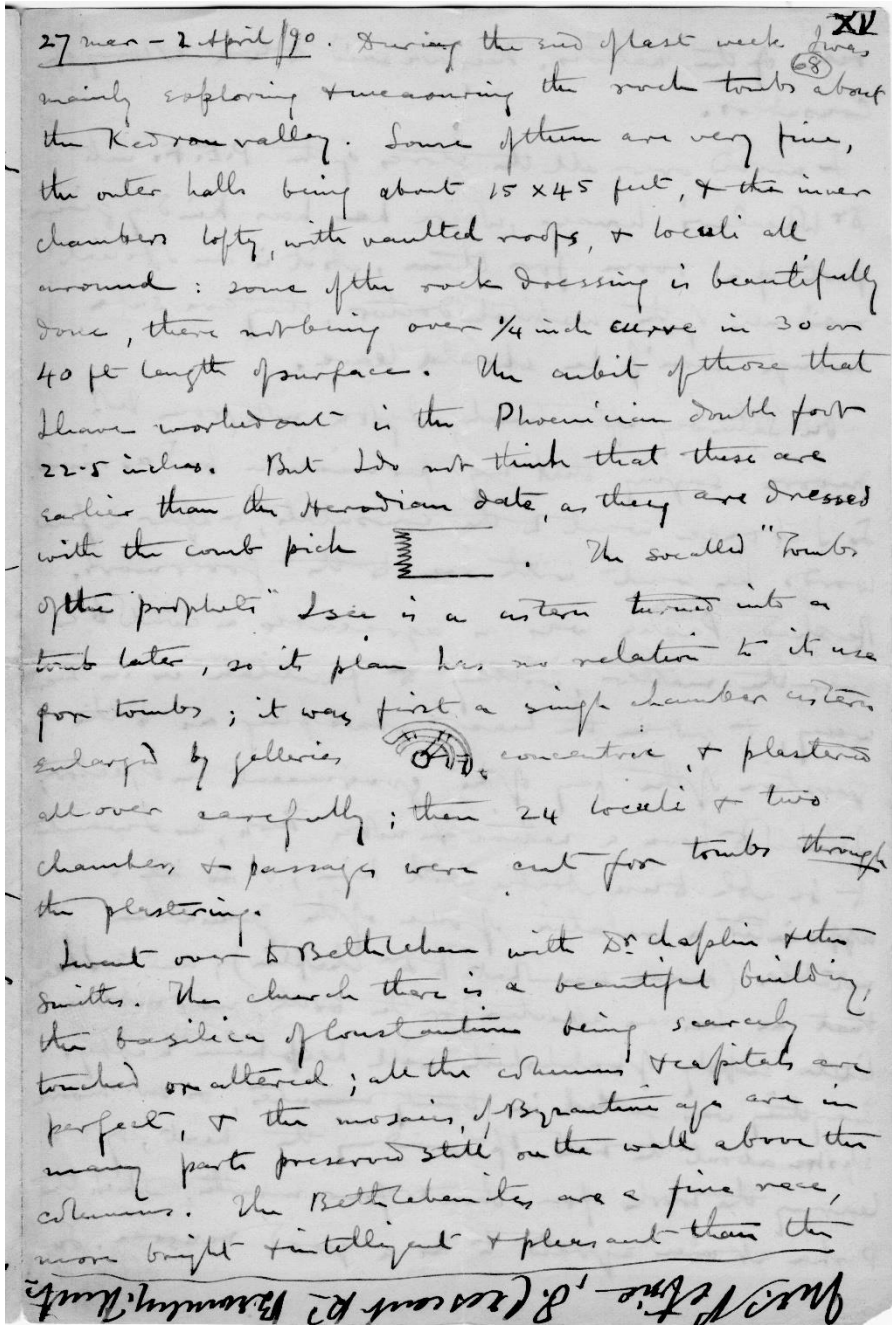 XV
27 mar – 2 April/90. During the end of last week I was
68
mainly exploring & measuring the rock tombs about
the Kedron valley. Some of them are very fine,
the outer halls being about 15 x 45 feet, & the inner
chambers lofty, with vaulted roofs, & loculi all
around : some of the rock dressing is beautifully
done, there not being over 1/4 inch curve in 30 or
40 ft length of surface. The cubit of those that
I have worked out is the Phoenician double foot
22.5 inches. But I do not think that these are
earlier than the Herodian date, as they are dressed
with the comb pick . The socalled "Tombs
of the prophets" I see is a cistern turned into a
tomb later, so its plan has no relation to its use
for tombs ; it was first a single chamber cistern
enlarged by galleries concentric, & plastered
all over carefully ; then 24 loculi & two
chambers & passages were cut for tombs through
the plastering.
I went over to Bethlehem with Dr. Chaplin & the
Smiths. The church there is a beautiful building,
the basilica of Constantine being scarcely
touched or altered ; all the columns & capitals are
perfect, & the mosaics, of Byzantine age are in
many parts preserved still on the wall above the
columns. The Bethlehemites are a fine race,
more bright & intelligent & pleasant than the
Mrs. Petrie, 8. Crescent Rd Bromley. Kent.